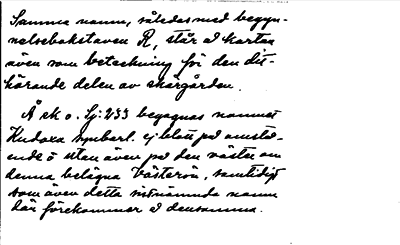 Samma namn, således med begyn-
nelsebokstaven R, står å kartan
även som beteckning för den dit-
hörande delen av skärgården.
Å sk o. Lj: 233 begagnas namnet
Hudoxa synbarl. ej blott på omstå-
ende ö utan även på den väster om
denna belägna Västerön, samtidigt
som även detta sistnämnda namn
där förekommer å densamma.